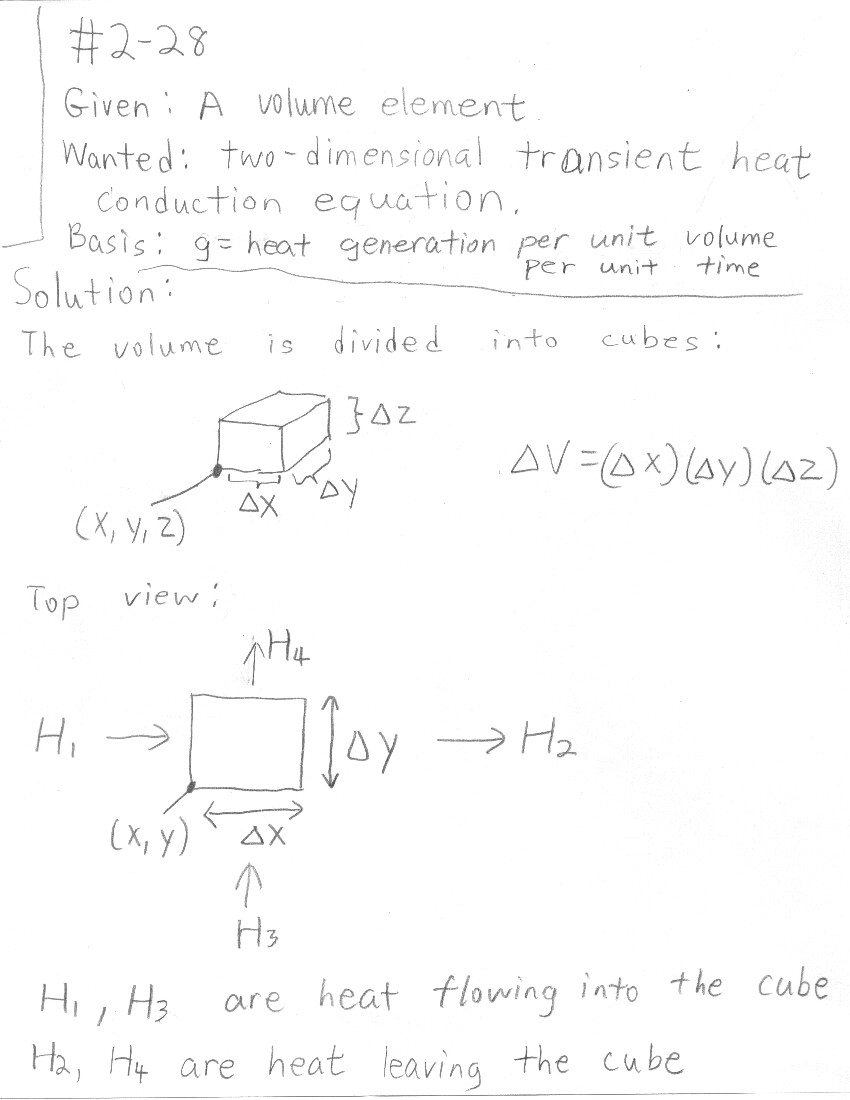 #2-28
Given: A volume element.
Wanted: two-dimensional transient heat
conduction equation.
Basis: g= heat generation per unit volume
per unit time
Solution:
The volume is divided into cubes:
}ΔZ
ΔV=(Δx)(Δy)(Δz)
ΔX
ΔY
(X, Y, Z)
Top view:
H4
H1 → ΔY → H2
(X, Y) ΔX
H3
H1, H3 are heat flowing into the cube
H2, H4 are heat leaving the cube